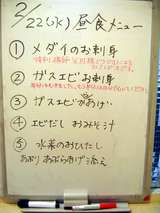 2/22(水) 昼食メニュー
① メダイのお刺身
② ガスエビお刺身
③ ガスエビかきあげ
④ エビだし おみそ汁
⑤ 水菜のおひたし
あぶり あぶらあげ添え